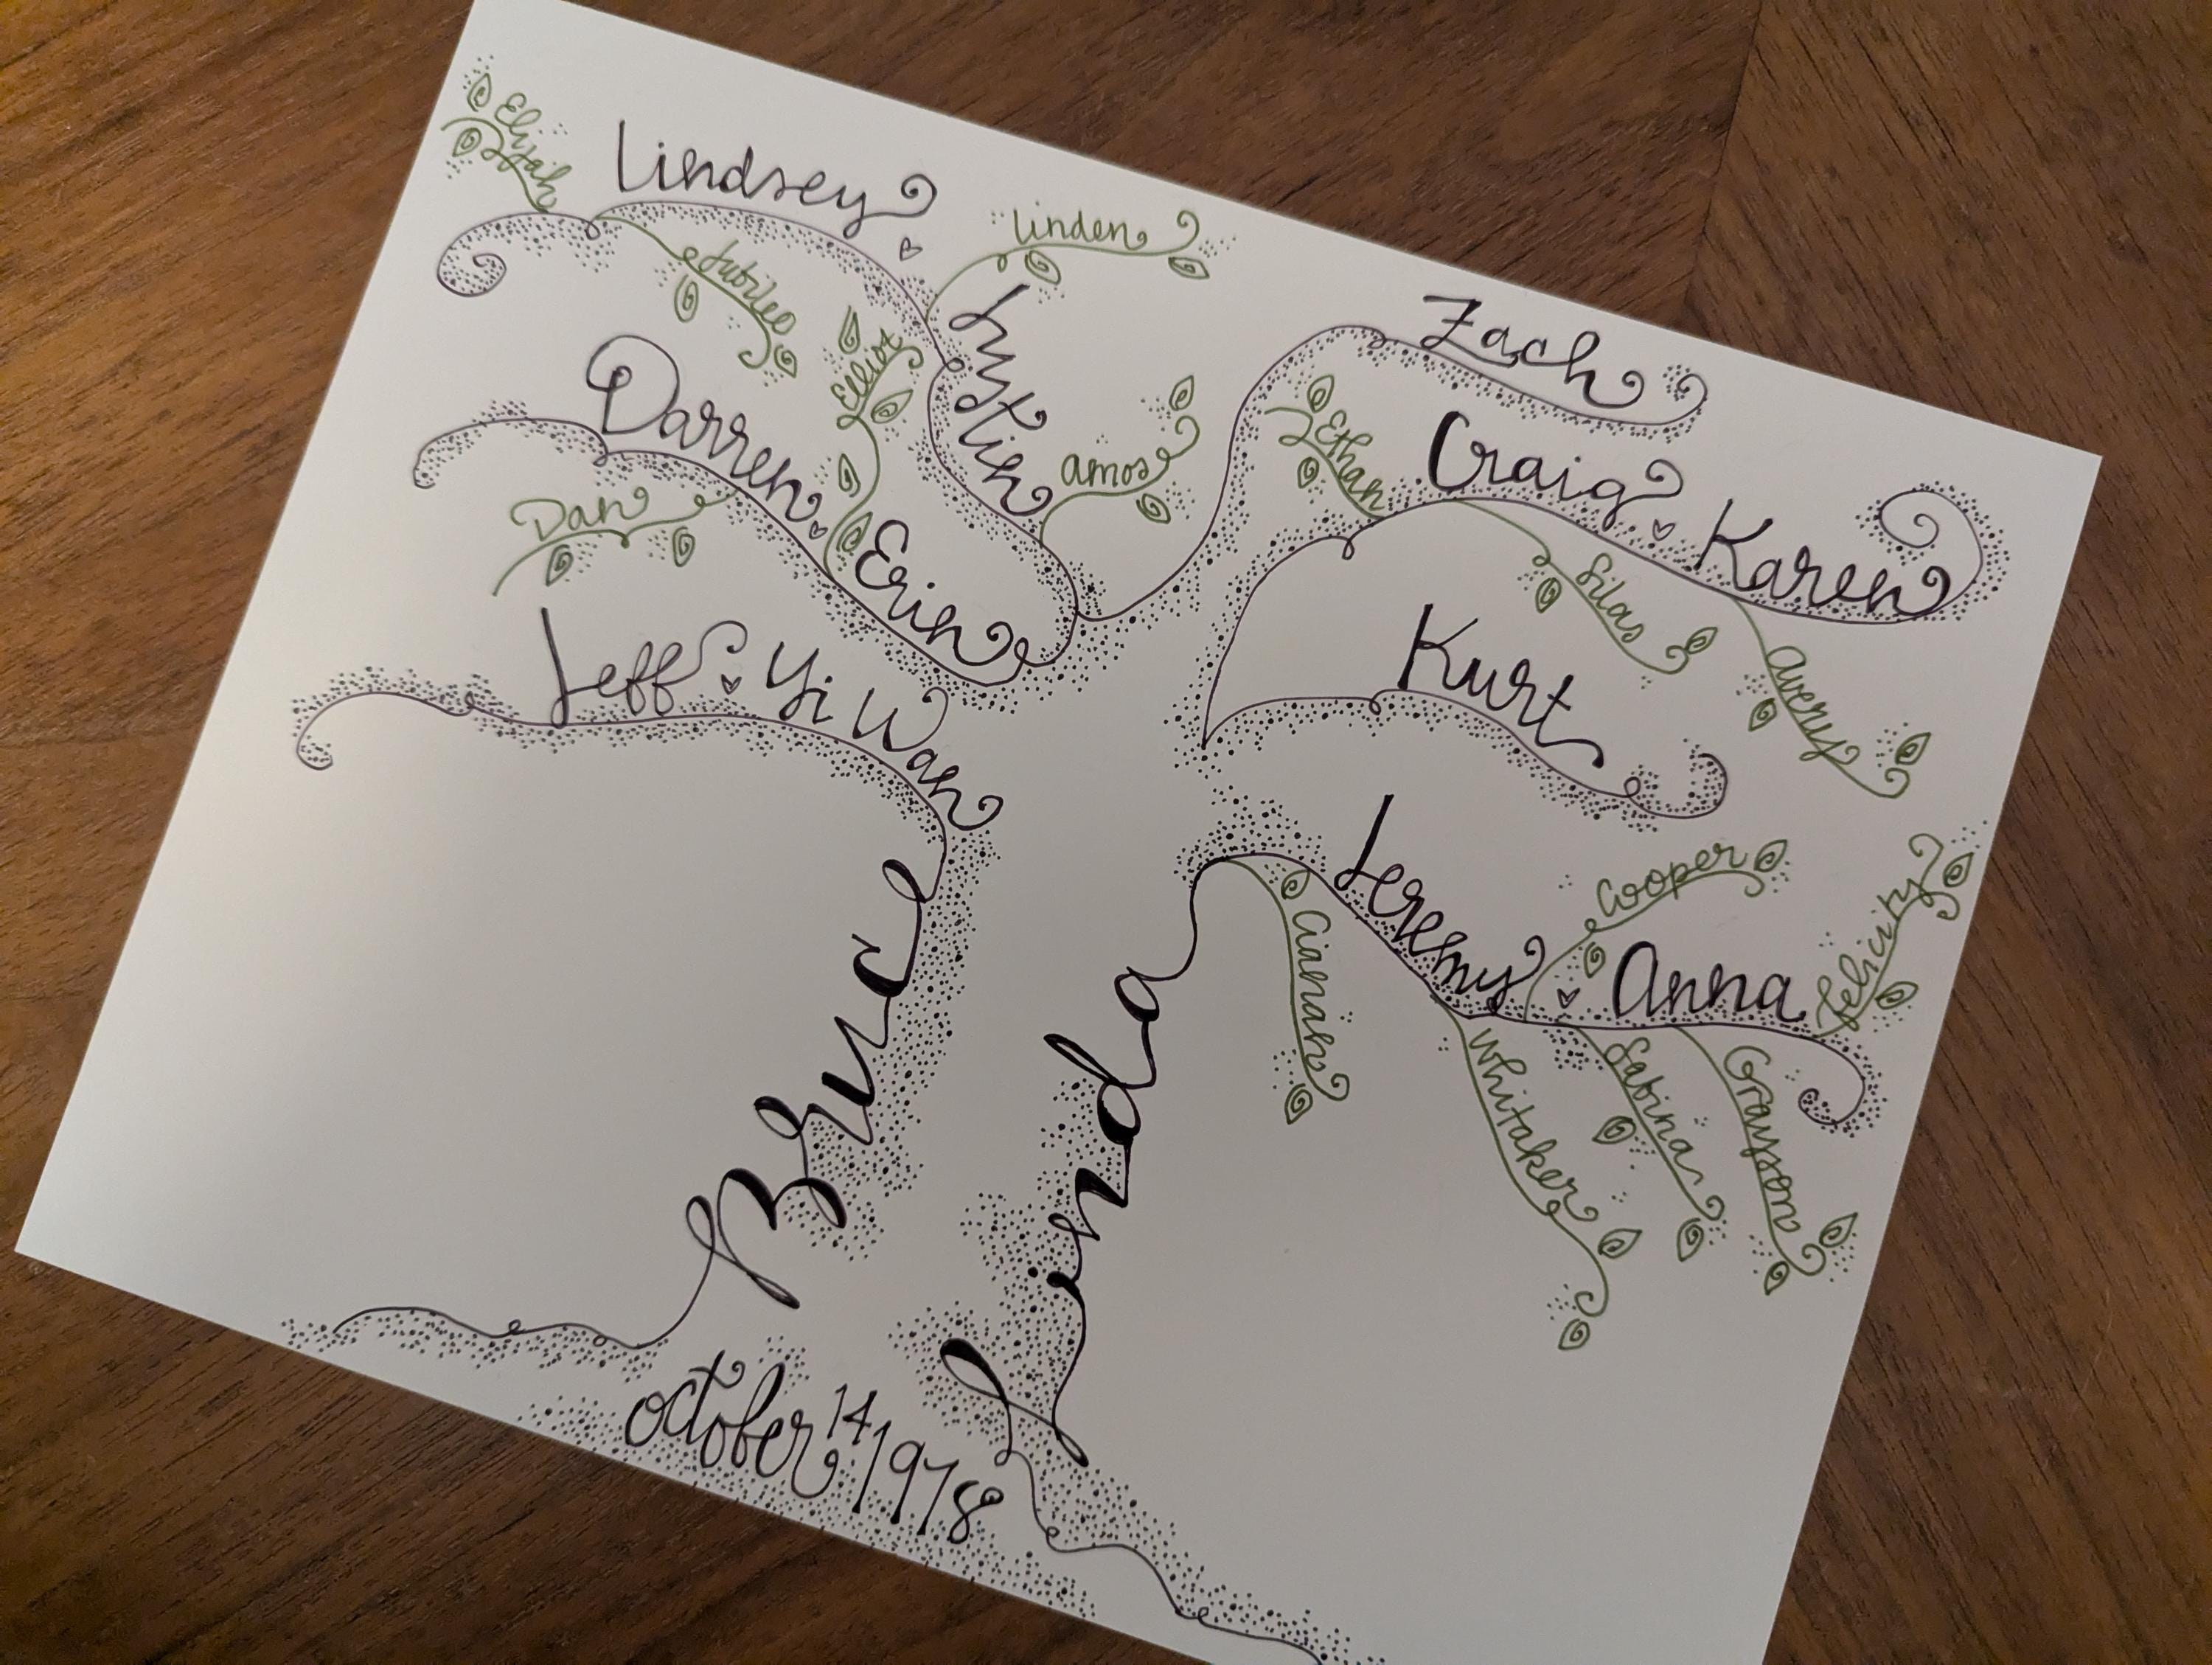 Elijah
Lindsey
Jubilee
Linden
Justin
Amos
Elliot
Darren
Erin
Dan
Jeff
Yi Wah
Zach
Ethan
Craig
Karen
Silas
Avery
Kurt
Jeremy
Anna
Cooper
Felicity
Whitaker
Sabina
Grayson
Bruce
Linda
October 14 1978